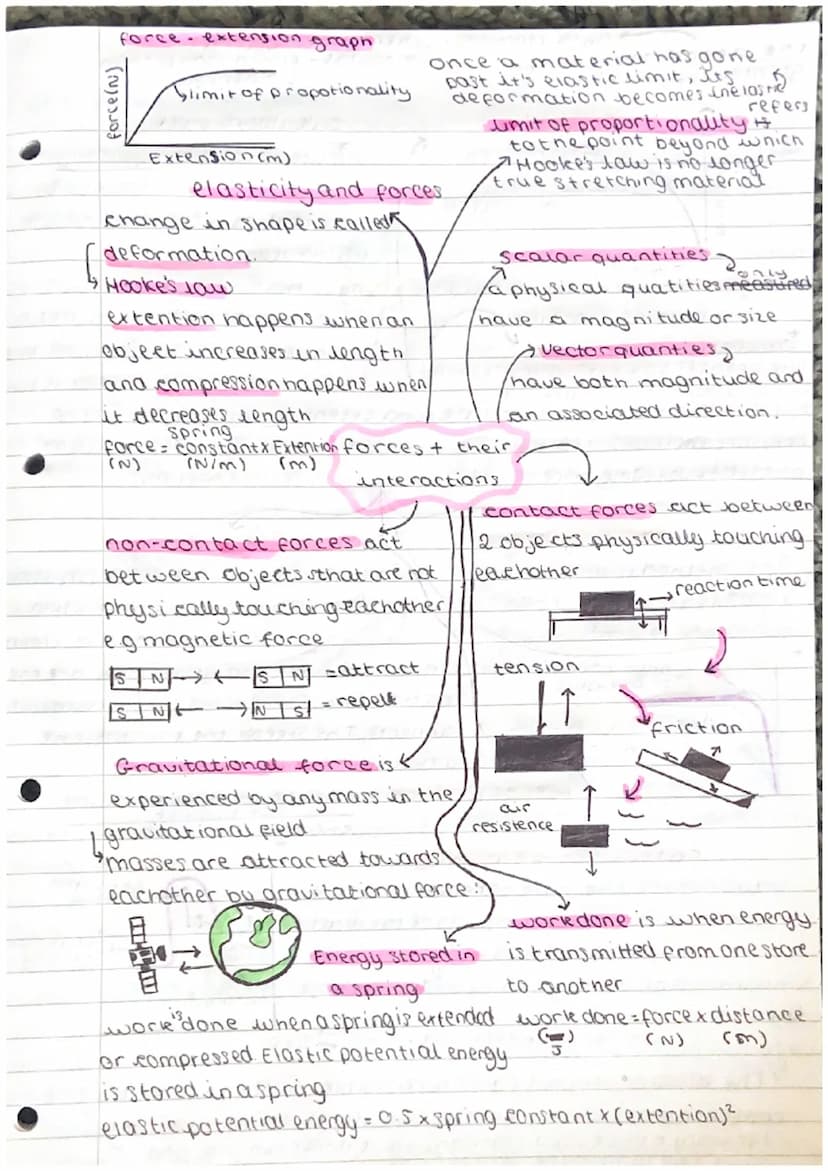 force - extension graph
force(N)
limit of propotionality
Extension (m)
once a material has gone
past it's elastic limit, its
deformation becomes inelastic
refers
limit of proportionality
to the point beyond which
Hooke's law is no longer
true stretching material
elasticity and forces
change in shape is called
deformation.
Hooke's law
extention happens when an
object increases in length
and compression happens when
it decreases length
force = spring constant x Extention
(N) (N/m) (m)
scalar quantities
only
a physical quatities measured
have a magnitude or size
vector quanties
have both magnitude and
an associated direction.
forces + their
interactions
contact forces act between
2 objects physically touching
eachother
reaction time
tension
friction
air
resistence
non-contact forces act
between objects that are not
physically touching eachother
e.g magnetic force
S N S N = attract
S N N S = repel
Gravitational force is
experienced by any mass in the
gravitational field
masses are attracted towards
eachother by gravitational force:
Energy stored in
a spring
work is done when a spring is extended
or compressed. Elastic potential energy
is stored in a spring
elastic potential energy = 0.5 x spring constant x (extention)²
work done is when energy
is transmitted from one store
to another
work done = force x distance
(J) (N) (m)